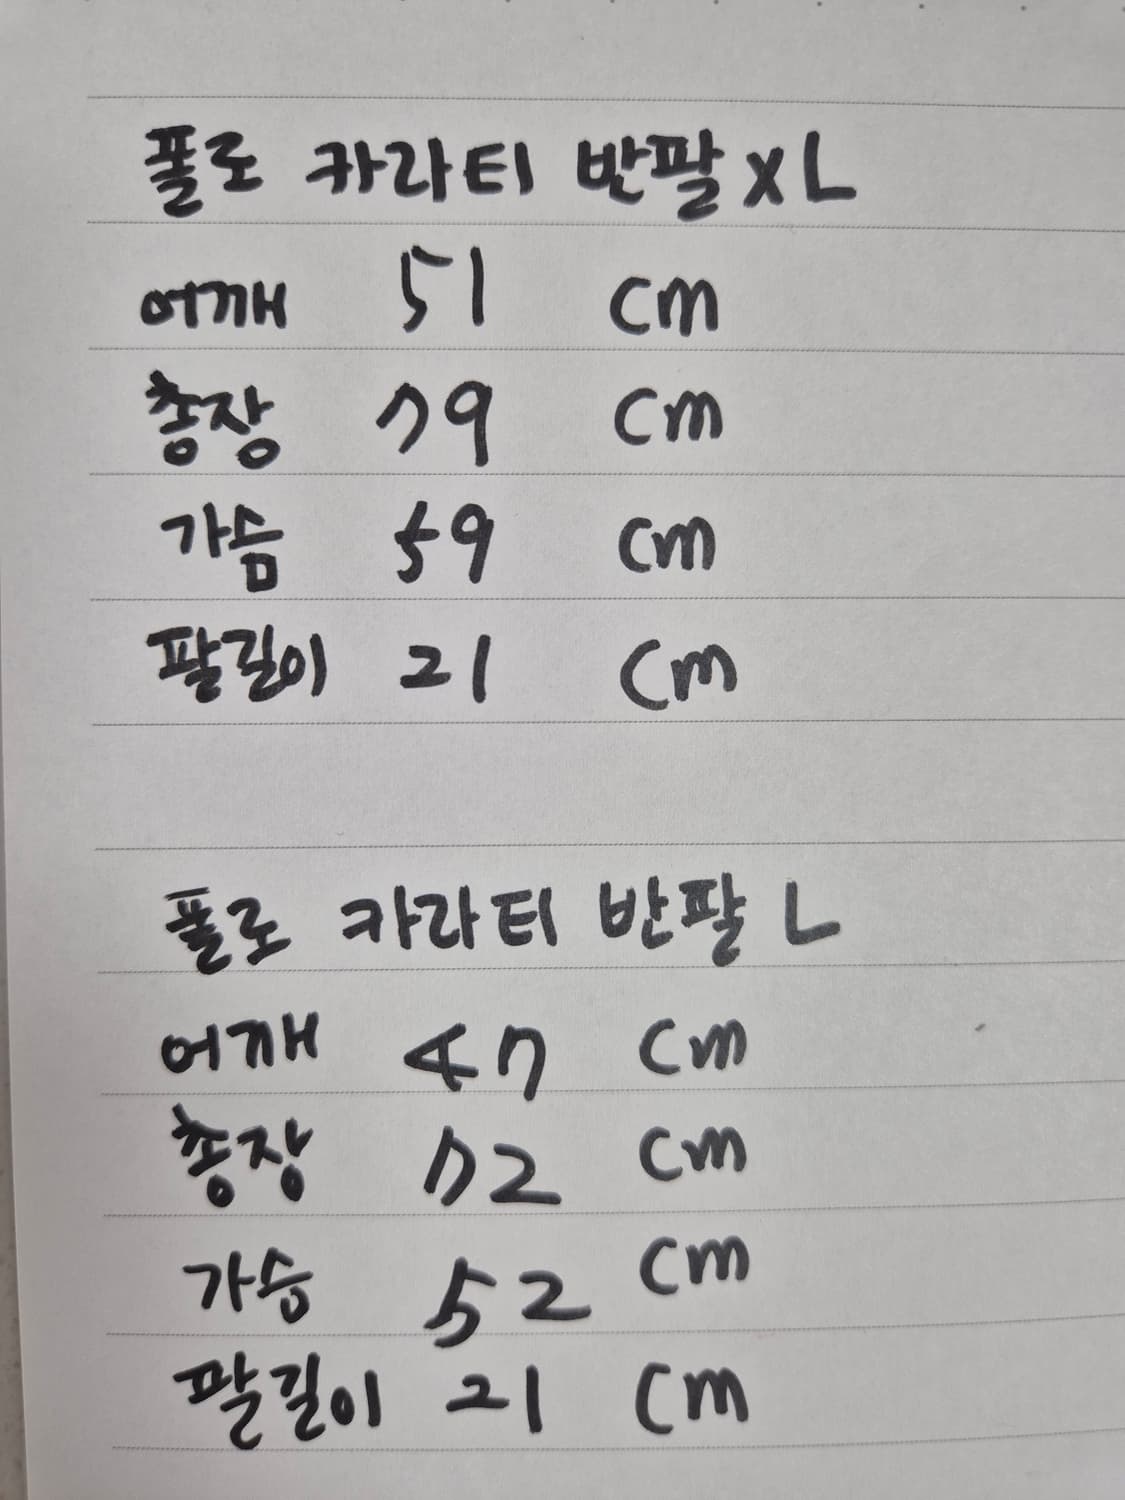 폴로 카라티 반팔 XL
어깨 51 cm
총장 79 cm
가슴 59 cm
팔길이 21 cm
폴로 카라티 반팔 L
어깨 47 cm
총장 72 cm
가슴 52 cm
팔길이 21 cm